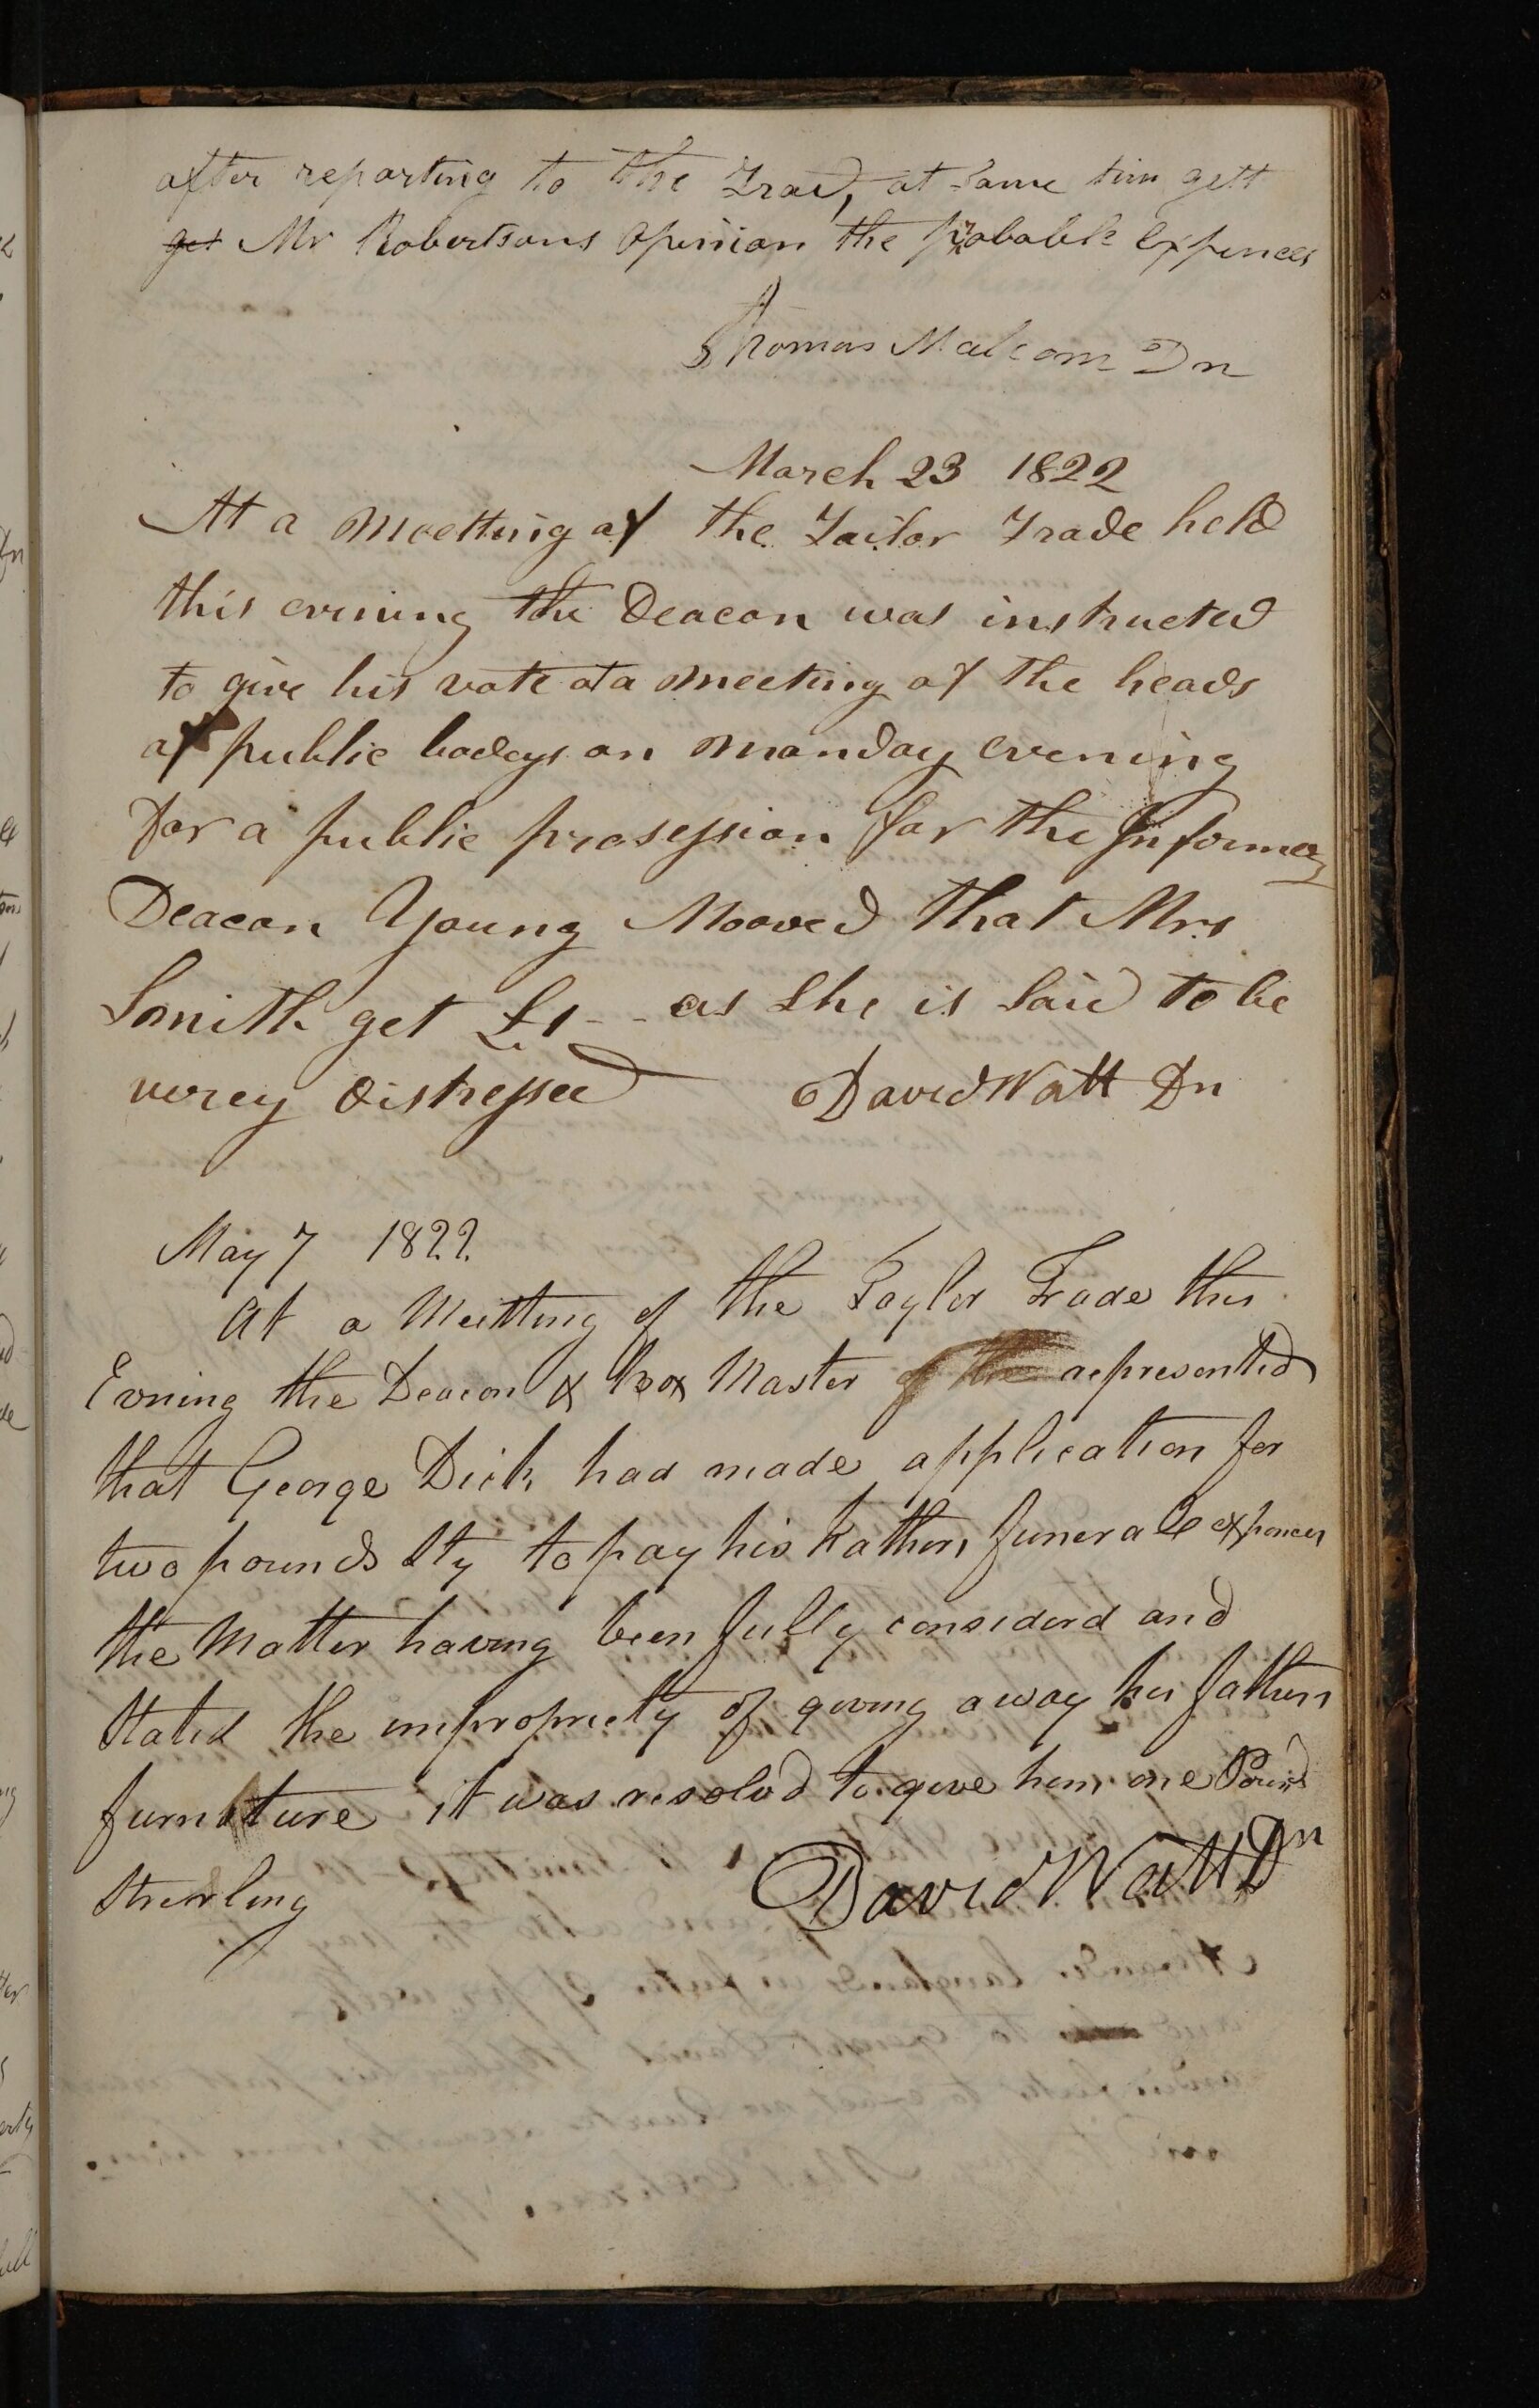 after reporting to the Trad, at same tim gett
get Mr Robertsons Opinion the probable Expences
Thomas Malcom Dn
March 23 1822
At a Moetting of the Tailor Trade held
this evining the Deacon was instructed
to give his vote at a Meeting of the heads
of public bodeys on Monday evening
For a public prosession for the Infermery
Deacon Young Mooved that Mrs
Smith get £1 - - as She is Said to be
verey distressed David Watt Dn
May 7 1822
At a Meetting of the Taylor Trade this
Evning the Deacon & Box Master of the represented
that George Dick had made application for
two pounds Stg to pay his Fathers funerall expences
the Matter having been fully considerd and
Stated the impropriety of giving away his fathers
furniture it was resolvd to give him one Pound
Strerling David Watt Dn